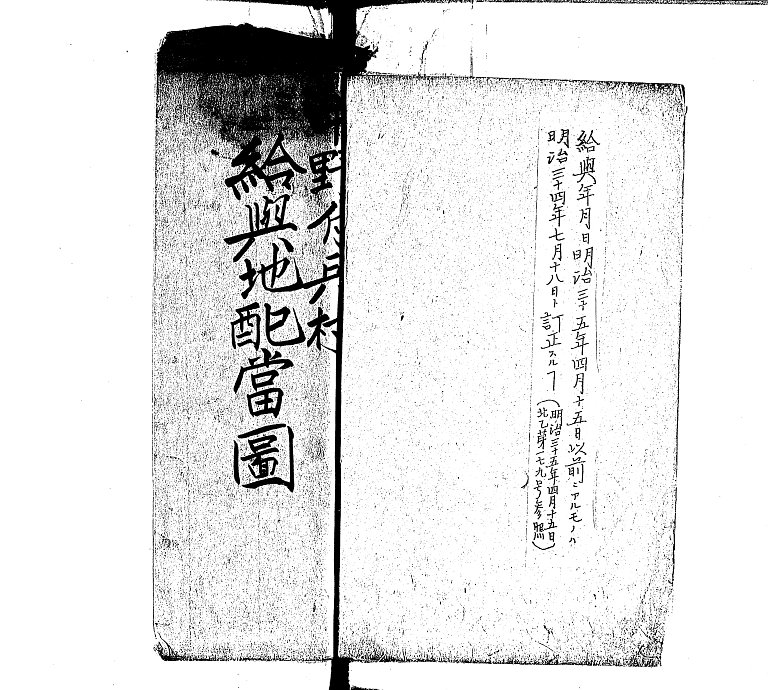 給與年月日明治三十五年四月十五日以前ニアルモノハ
明治三十四年七月十八日ト訂正スルヿ(明治三十五年四月十五日
北乙第一七九号参照)
野付兵村
給與地配當圖